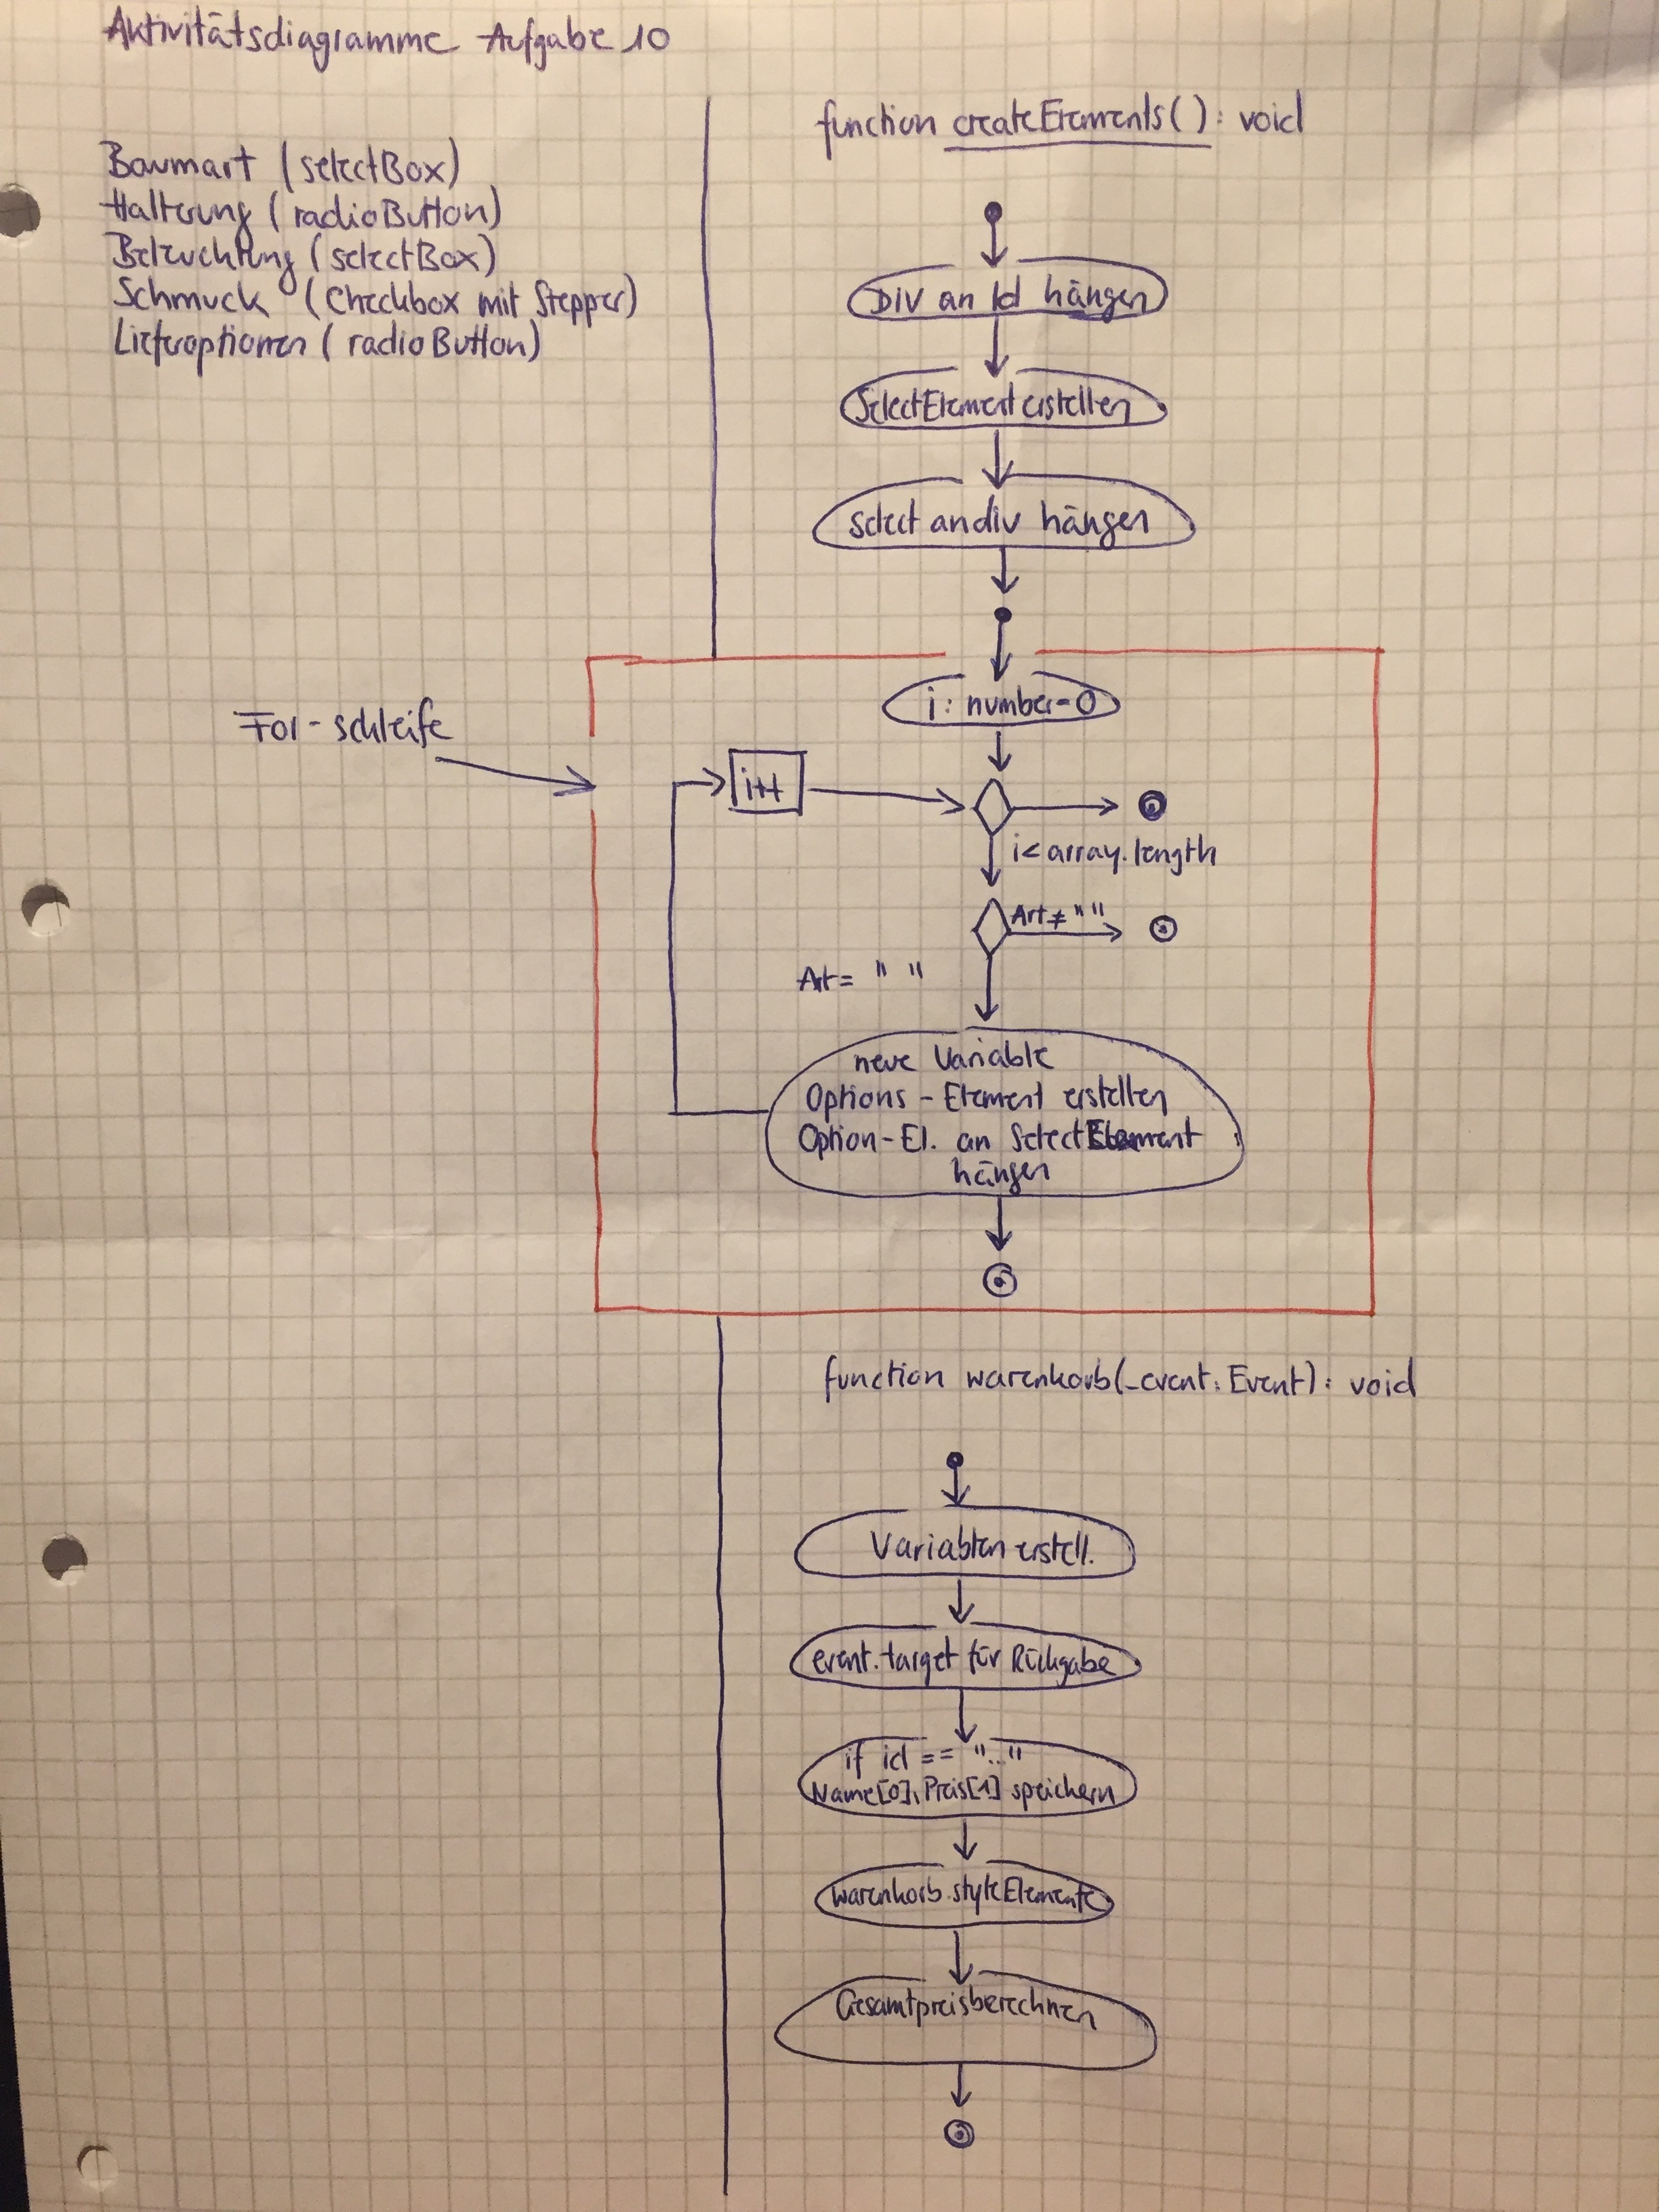 Aktivitätsdiagramme Aufgabe 10
Baumart (selectBox)
Halterung (radioButton)
Beleuchtung (selectBox)
Schmuck (Checkbox mit Stepper)
Lieferoptionen (radioButton)
function createElements(): void
Div an Id hängen
SelectElement erstellen
select an div hängen
For-schleife
i: number=0
i++
i<array.length
Art≠" "
Art= " "
neue Variable
Options-Element erstellen
Option-El. an SelectElement
hängen
function warenkorb(_event: Event): void
Variablen erstell.
event.target für Rückgabe
if id == "..."
Name[0], Preis[1] speichern
warenkorb.styleElemente
Gesamtpreis berechnen